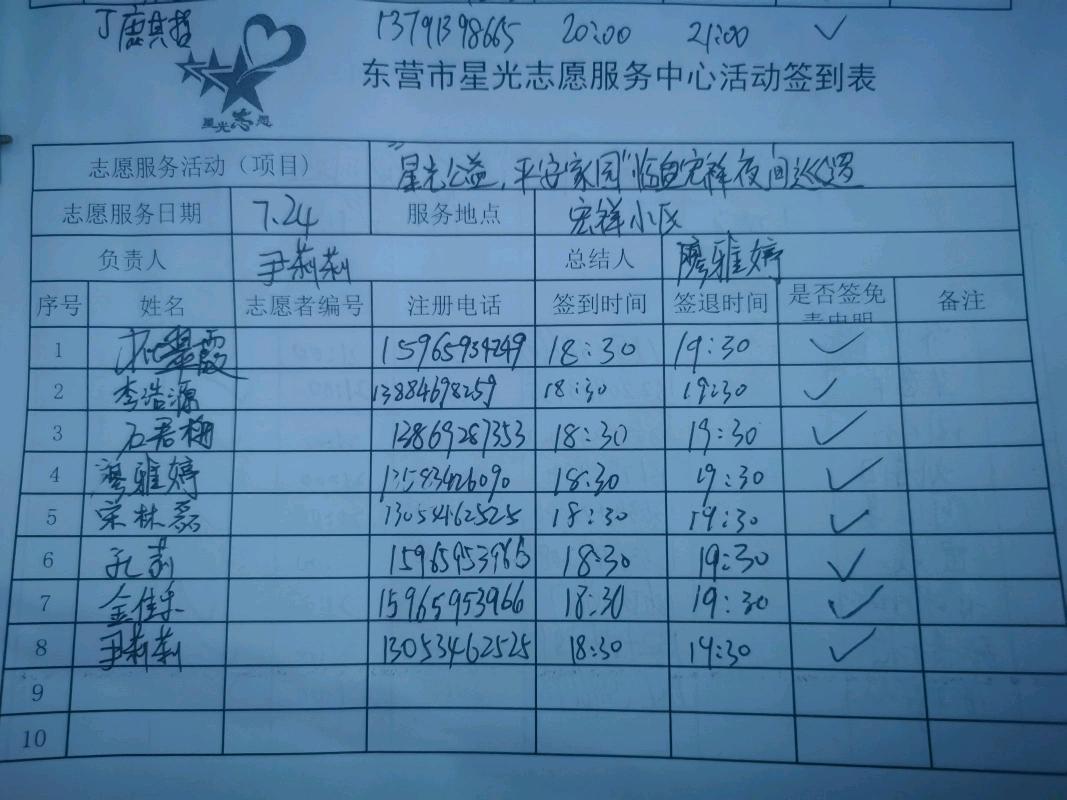 丁康其哲 13791398665 20:00 21:00 ✓
星光志愿
东营市星光志愿服务中心活动签到表
志愿服务活动（项目） "星光公益，平安家园"临自宏祥夜间巡逻
志愿服务日期 7.24 服务地点 宏祥小区
负责人 尹莉莉 总结人 廖雅婷
序号 姓名 志愿者编号 注册电话 签到时间 签退时间 是否签免责申明 备注
1 翠霞 15965934249 18:30 19:30 ✓
2 李浩源 13884698259 18:30 19:30 ✓
3 石君栅 13869287353 18:30 19:30 ✓
4 廖雅婷 13583426090 18:30 19:30 ✓
5 荣林磊 13054462525 18:30 19:30 ✓
6 孔莉 15965953965 18:30 19:30 ✓
7 金佳乐 15965953966 18:30 19:30 ✓
8 尹莉莉 13053462525 18:30 19:30 ✓
9
10